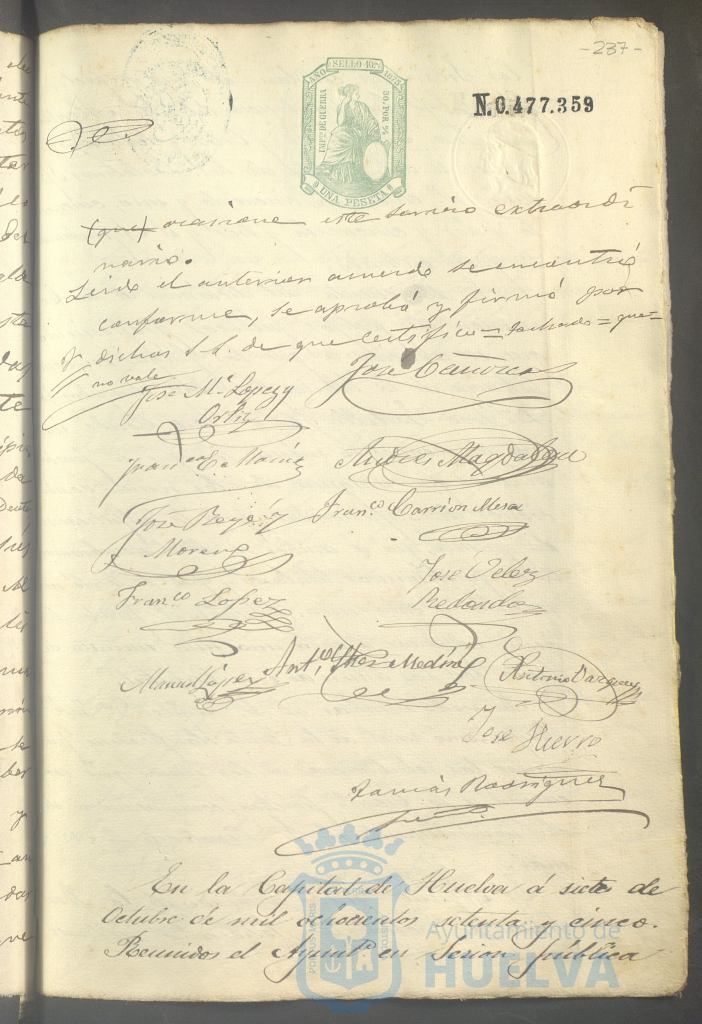 -237-
AÑO SELLO 10º 1875
IMPTO DE GUERRA
50. POR %
UNA PESETA
N.0.477.359
(que) ocasione este servicio extraordi
nario.
Leido el anterior acuerdo se encontró
conforme, se aprobó y firmó por
dichos S.S. de que certifico = tachado = que =
no vale
José Mª Lopez y
Ortiz
José Cánovas
Andrés Magdalena
José Reyes y
Moreno
Franco Carrion Mesa
Franco Lopez
José Velez
Redondo
Manuel López
Anto Medina
Antonio Vazquez
José Hierro
Tomás Rodriguez
En la Capital de Huelva á siete de
Octubre de mil ochocientos setenta y cinco.
Reunidos el Ayuntº en Sesion pública
Ayuntamiento de
HUELVA